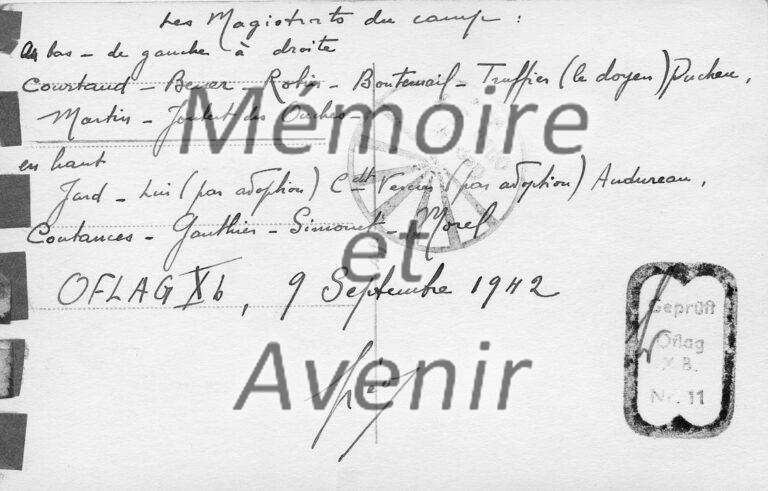 Les Magistrats du camp :
en bas - de gauche à droite
Courtaud - Bever - Robin - Boutemail - Truffier (le doyen) Pucheu,
Martin - Joubert des Ouches -
en haut
Jard - Luis (par adoption) Cdt (par adoption) Andureau,
Coutances - Gauthier - Simonet - Morel
OFLAG Xb, 9 Septembre 1942
Mémoire
et
Avenir
Geprüft
Oflag
X B.
Nr. 11